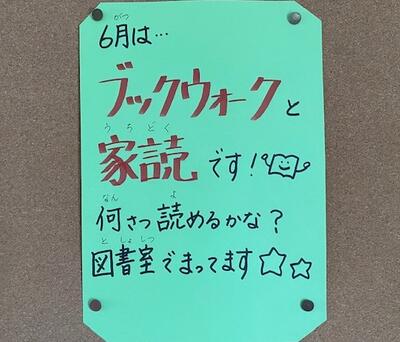 6月は…
ブックウォークと
家読です!
何さつ読めるかな?
図書室でまってます☆☆